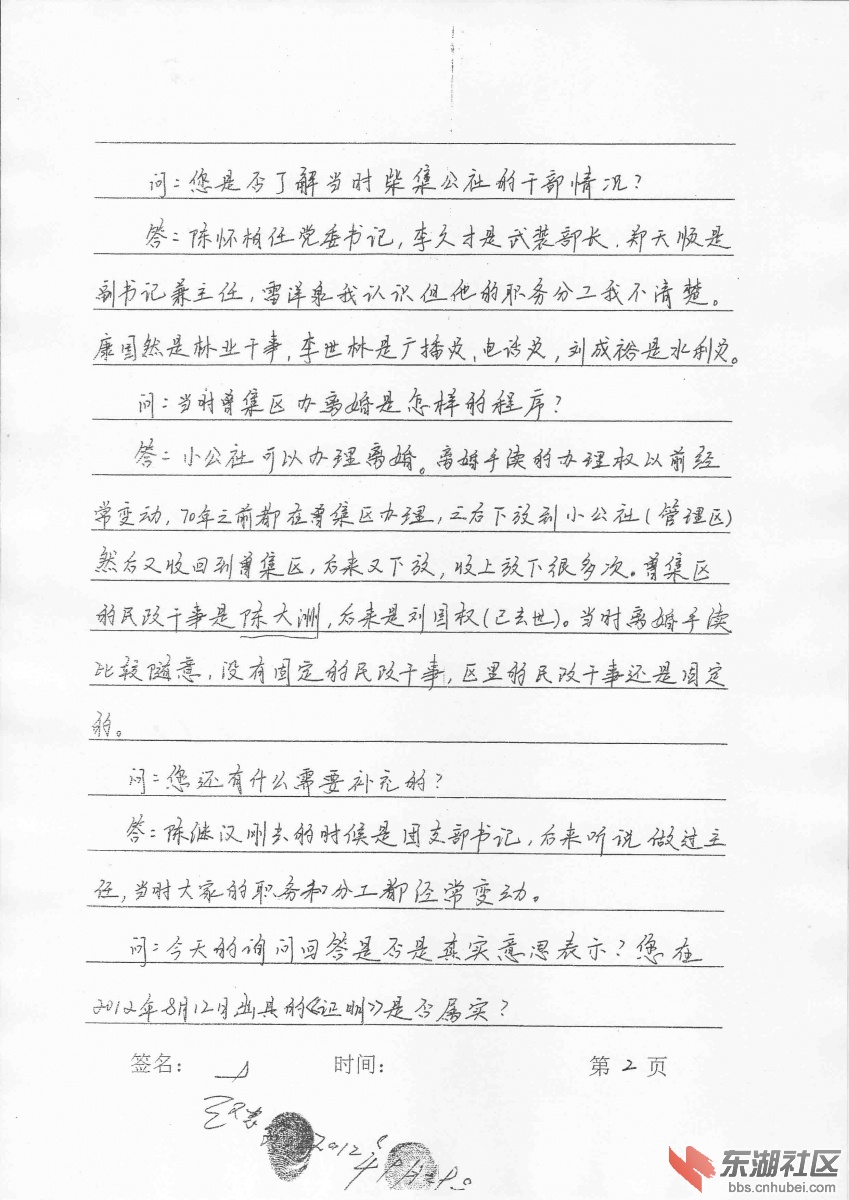 问：您是否了解当时柴集公社的干部情况？
答：陈怀柏任党委书记，李久才是武装部长，郑天顺是
副书记兼主任，雷洋泉我认识但他的职务分工我不清楚。
康国然是林业干事，李世林是广播员，电话员，刘成裕是水利员。
问：当时尊集区办离婚是怎样的程序？
答：小公社可以办理离婚。离婚手续的办理权以前经
常变动，70年之前都在尊集区办理，之后下放到小公社（管理区）
然后又收回到尊集区，后来又下放，收上放下很多次。尊集区
的民政干事是陈大洲，后来是刘国权（已去世）。当时离婚手续
比较随意，没有固定的民政干事，区里的民政干事还是固定
的。
问：您还有什么需要补充的？
答：陈继汉刚去的时候是团支部书记，后来听说做过主
任，当时大家的职务和分工都经常变动。
问：今天的询问回答是否是真实意思表示？您在
2012年8月12日出具的《证明》是否属实？
签名： 时间： 第 2 页
2012
东湖社区
bbs.cnhubei.com